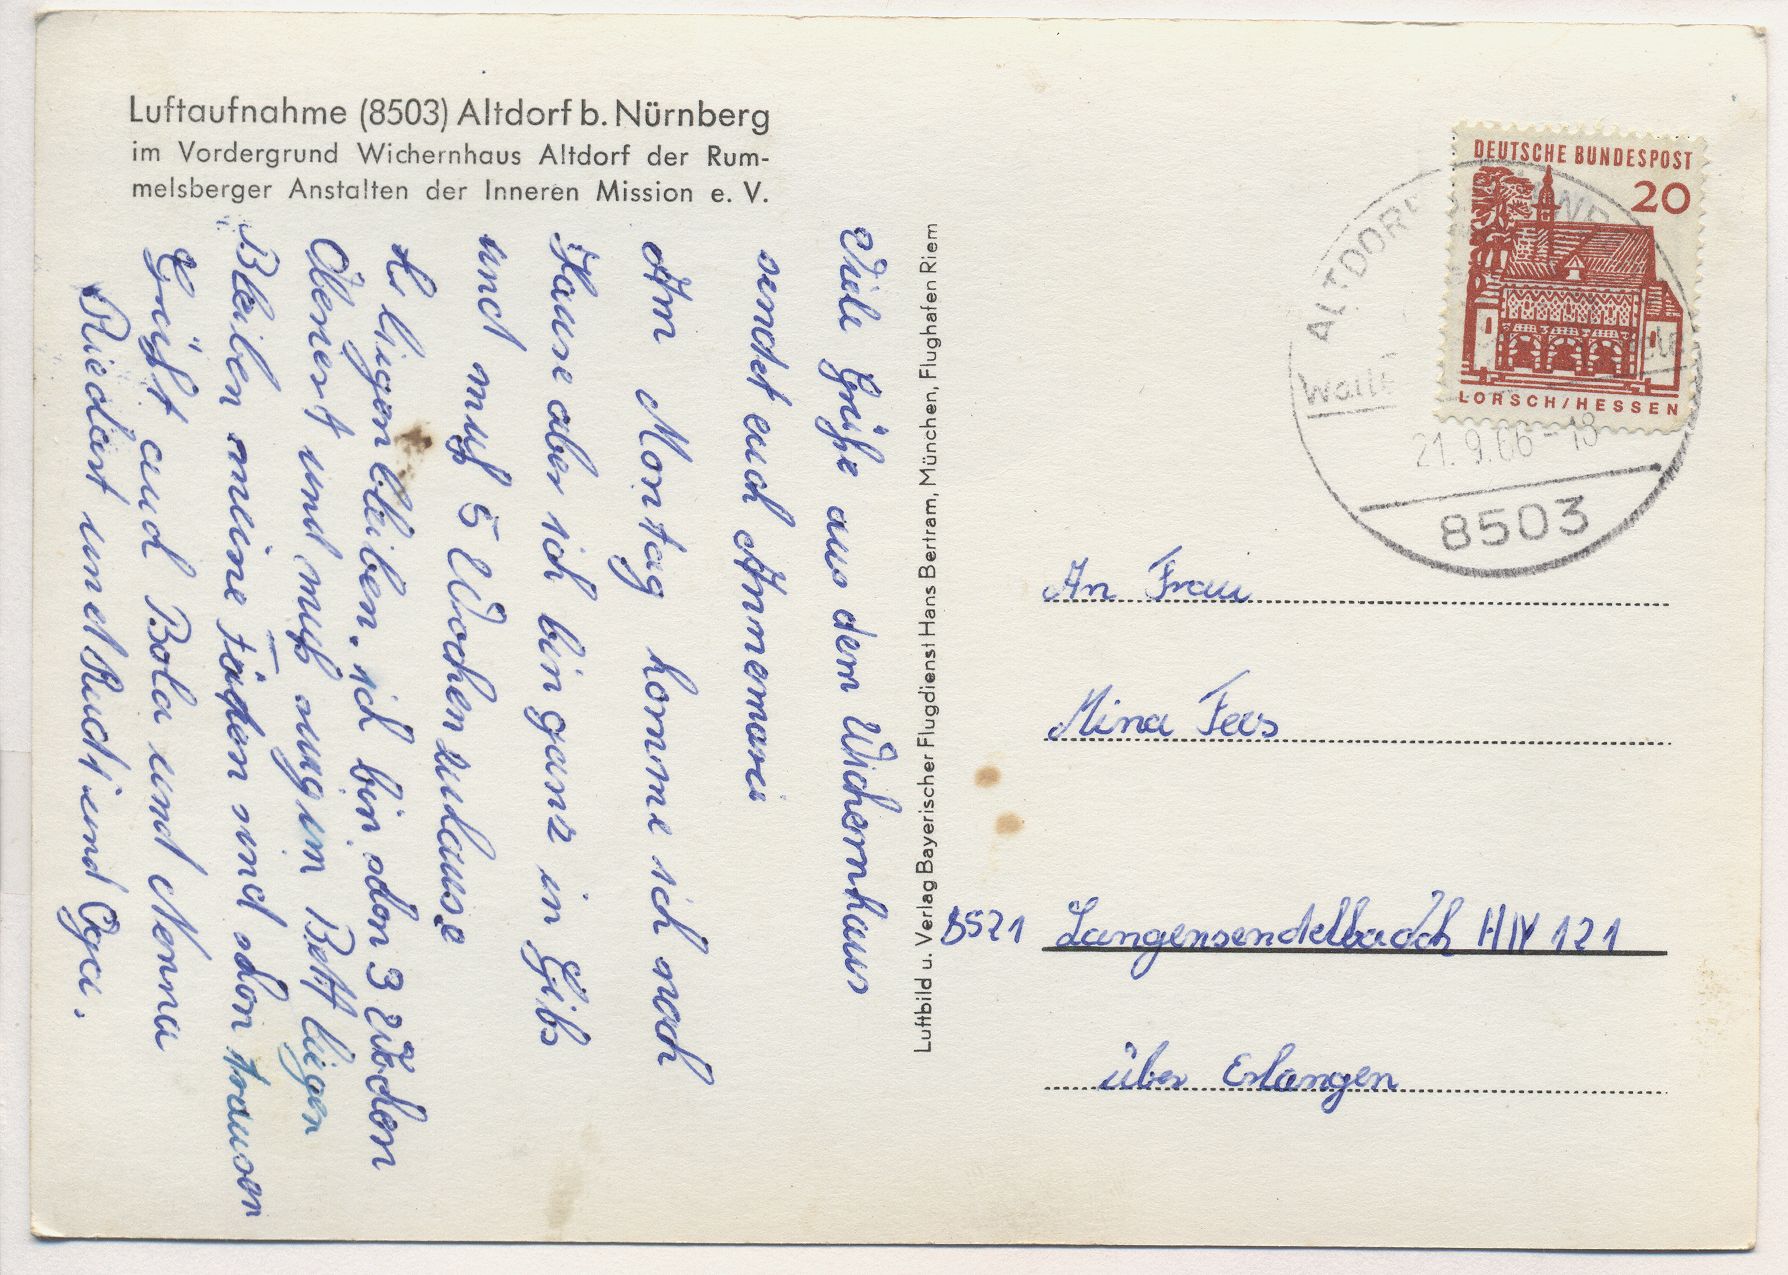 Luftaufnahme (8503) Altdorf b. Nürnberg
im Vordergrund Wichernhaus Altdorf der Rum-
melsberger Anstalten der Inneren Mission e. V.
Viele Grüße aus dem Wichernhaus
sendet euch Annemarie
Am Montag komme ich nach
Hause aber ich bin ganz in Gibs
und muß 5 Wochen zuhause
liegen bleiben. ich bin schon 3 Wochen
Oberiert und muß nur im Bett liegen
Bleiben meine Fäden sind schon trausen
Grüßt aud Bola und Nenna
Riedert und Rudi und Oga.
Luftbild u. Verlag Bayerischer Flugdienst Hans Bertram, München, Flughafen Riem
DEUTSCHE BUNDESPOST
20
LORSCH/HESSEN
ALTDORF
21.9.66-18
8503
An Frau
Mina Fees
8521 Langensendelbach HN 121
über Erlangen